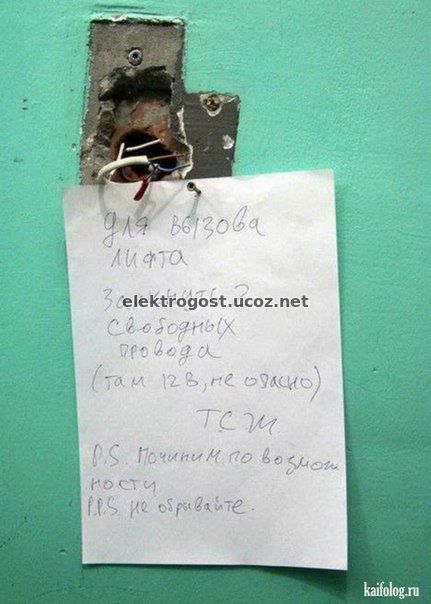 Для вызова
лифта
elektrogost.ucoz.net
2
свободных
провода
(там 12 в, не опасно)
ТСЖ
P.S. Починим по возмож
ности
P.P.S. не обрывайте.
kaifolog.ru